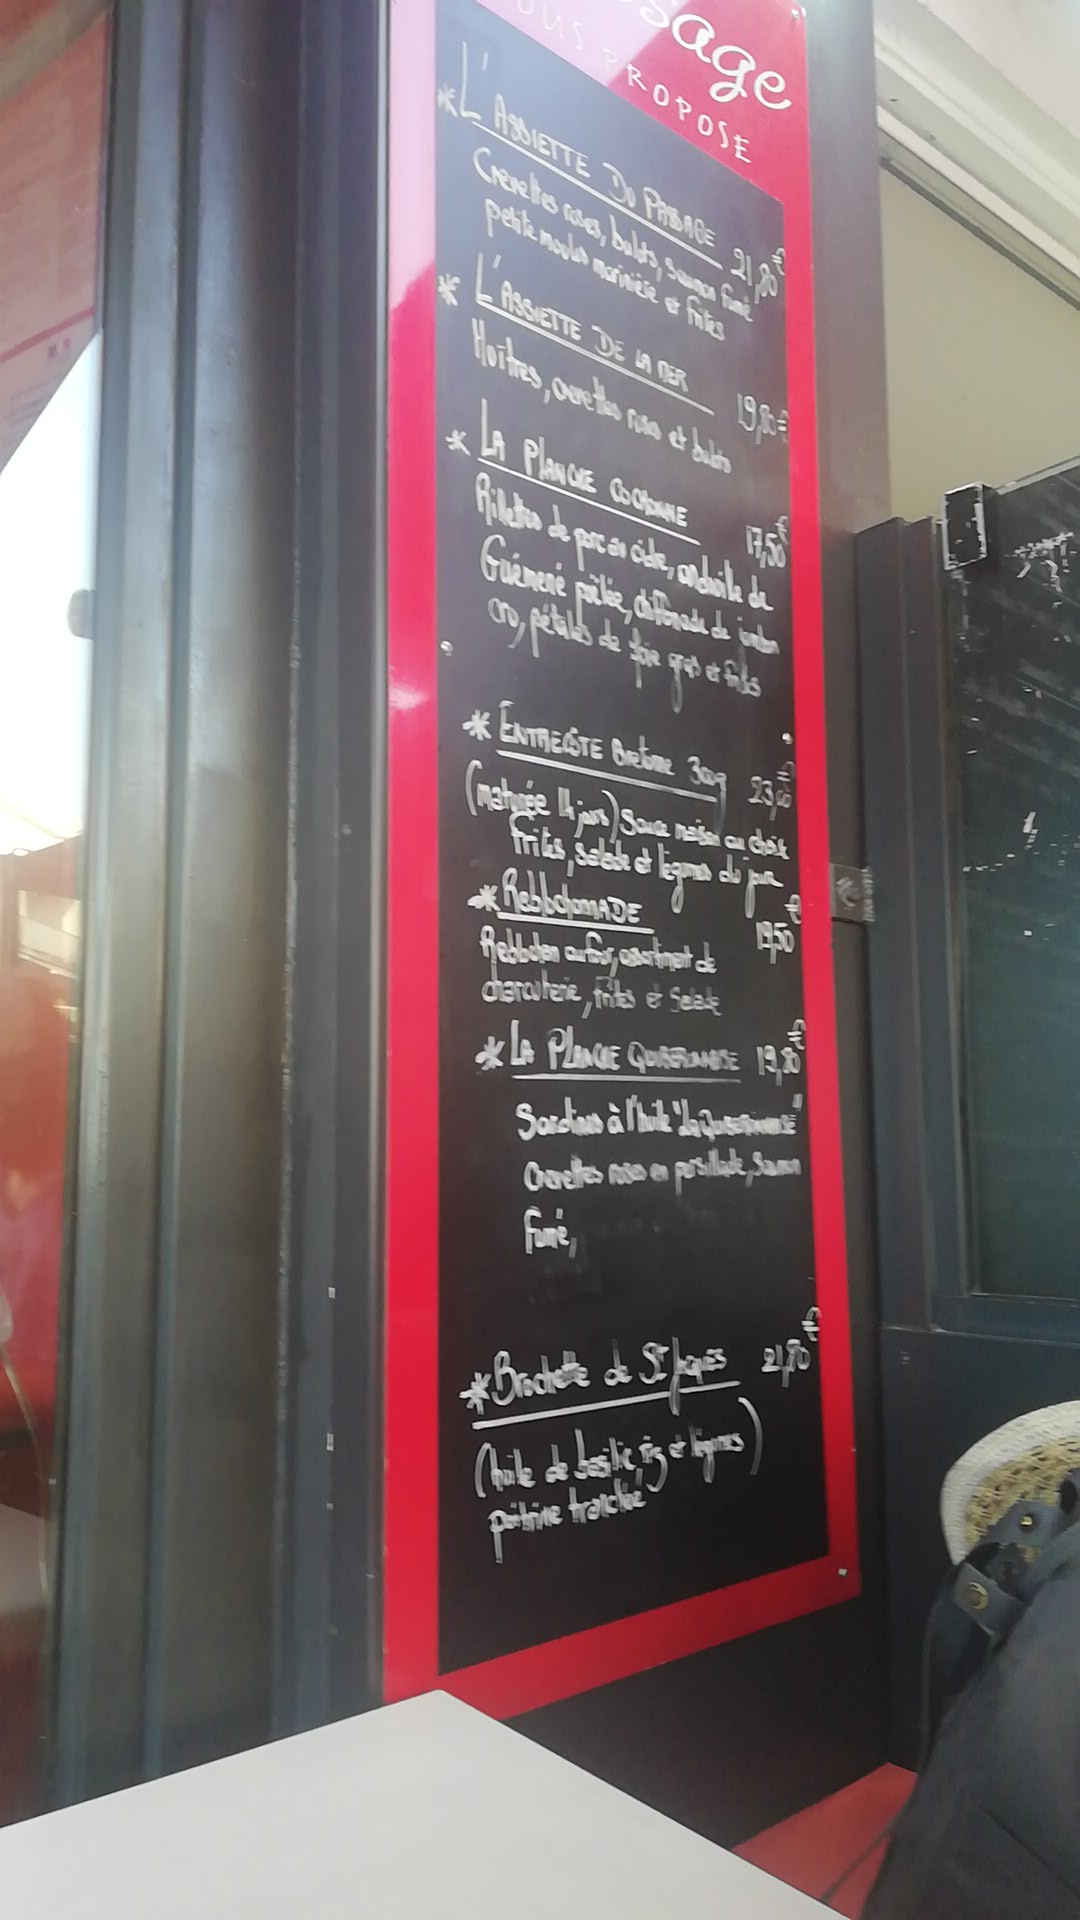 sage
OUS PROPOSE
*L'ASSIETTE DU PASSAGE 21,80€
Crevettes roses, bulots, saumon fumé
petite moules marinière et frites
* L'ASSIETTE DE LA MER 19,80€
Huîtres, crevettes roses et bulots
* LA PLANCHE COCHONNE 17,50€
Rillettes de porc au cidre, andouille de
Guémené poêlée, chiffonade de jambon
cru, pétales de foie gras et frites
* ENTRECÔTE Bretonne 300g 23,00€
(maturée 14 jours) Sauce maison au choix
Frites, salade et légumes du jour
*RebblochonnADE 19,50€
Rebbochon au four, assortiment de
charcuterie, frites et Salade
* LA PLANCHE QUIBERONNAISE 19,80€
Sardines à l'huile "La QUIBERONNAISE"
Crevettes roses en persillade, Saumon
fumé,
*Brochette de St Jacques 21,80€
(huile de basilic, riz et légumes)
poitrine tranchée